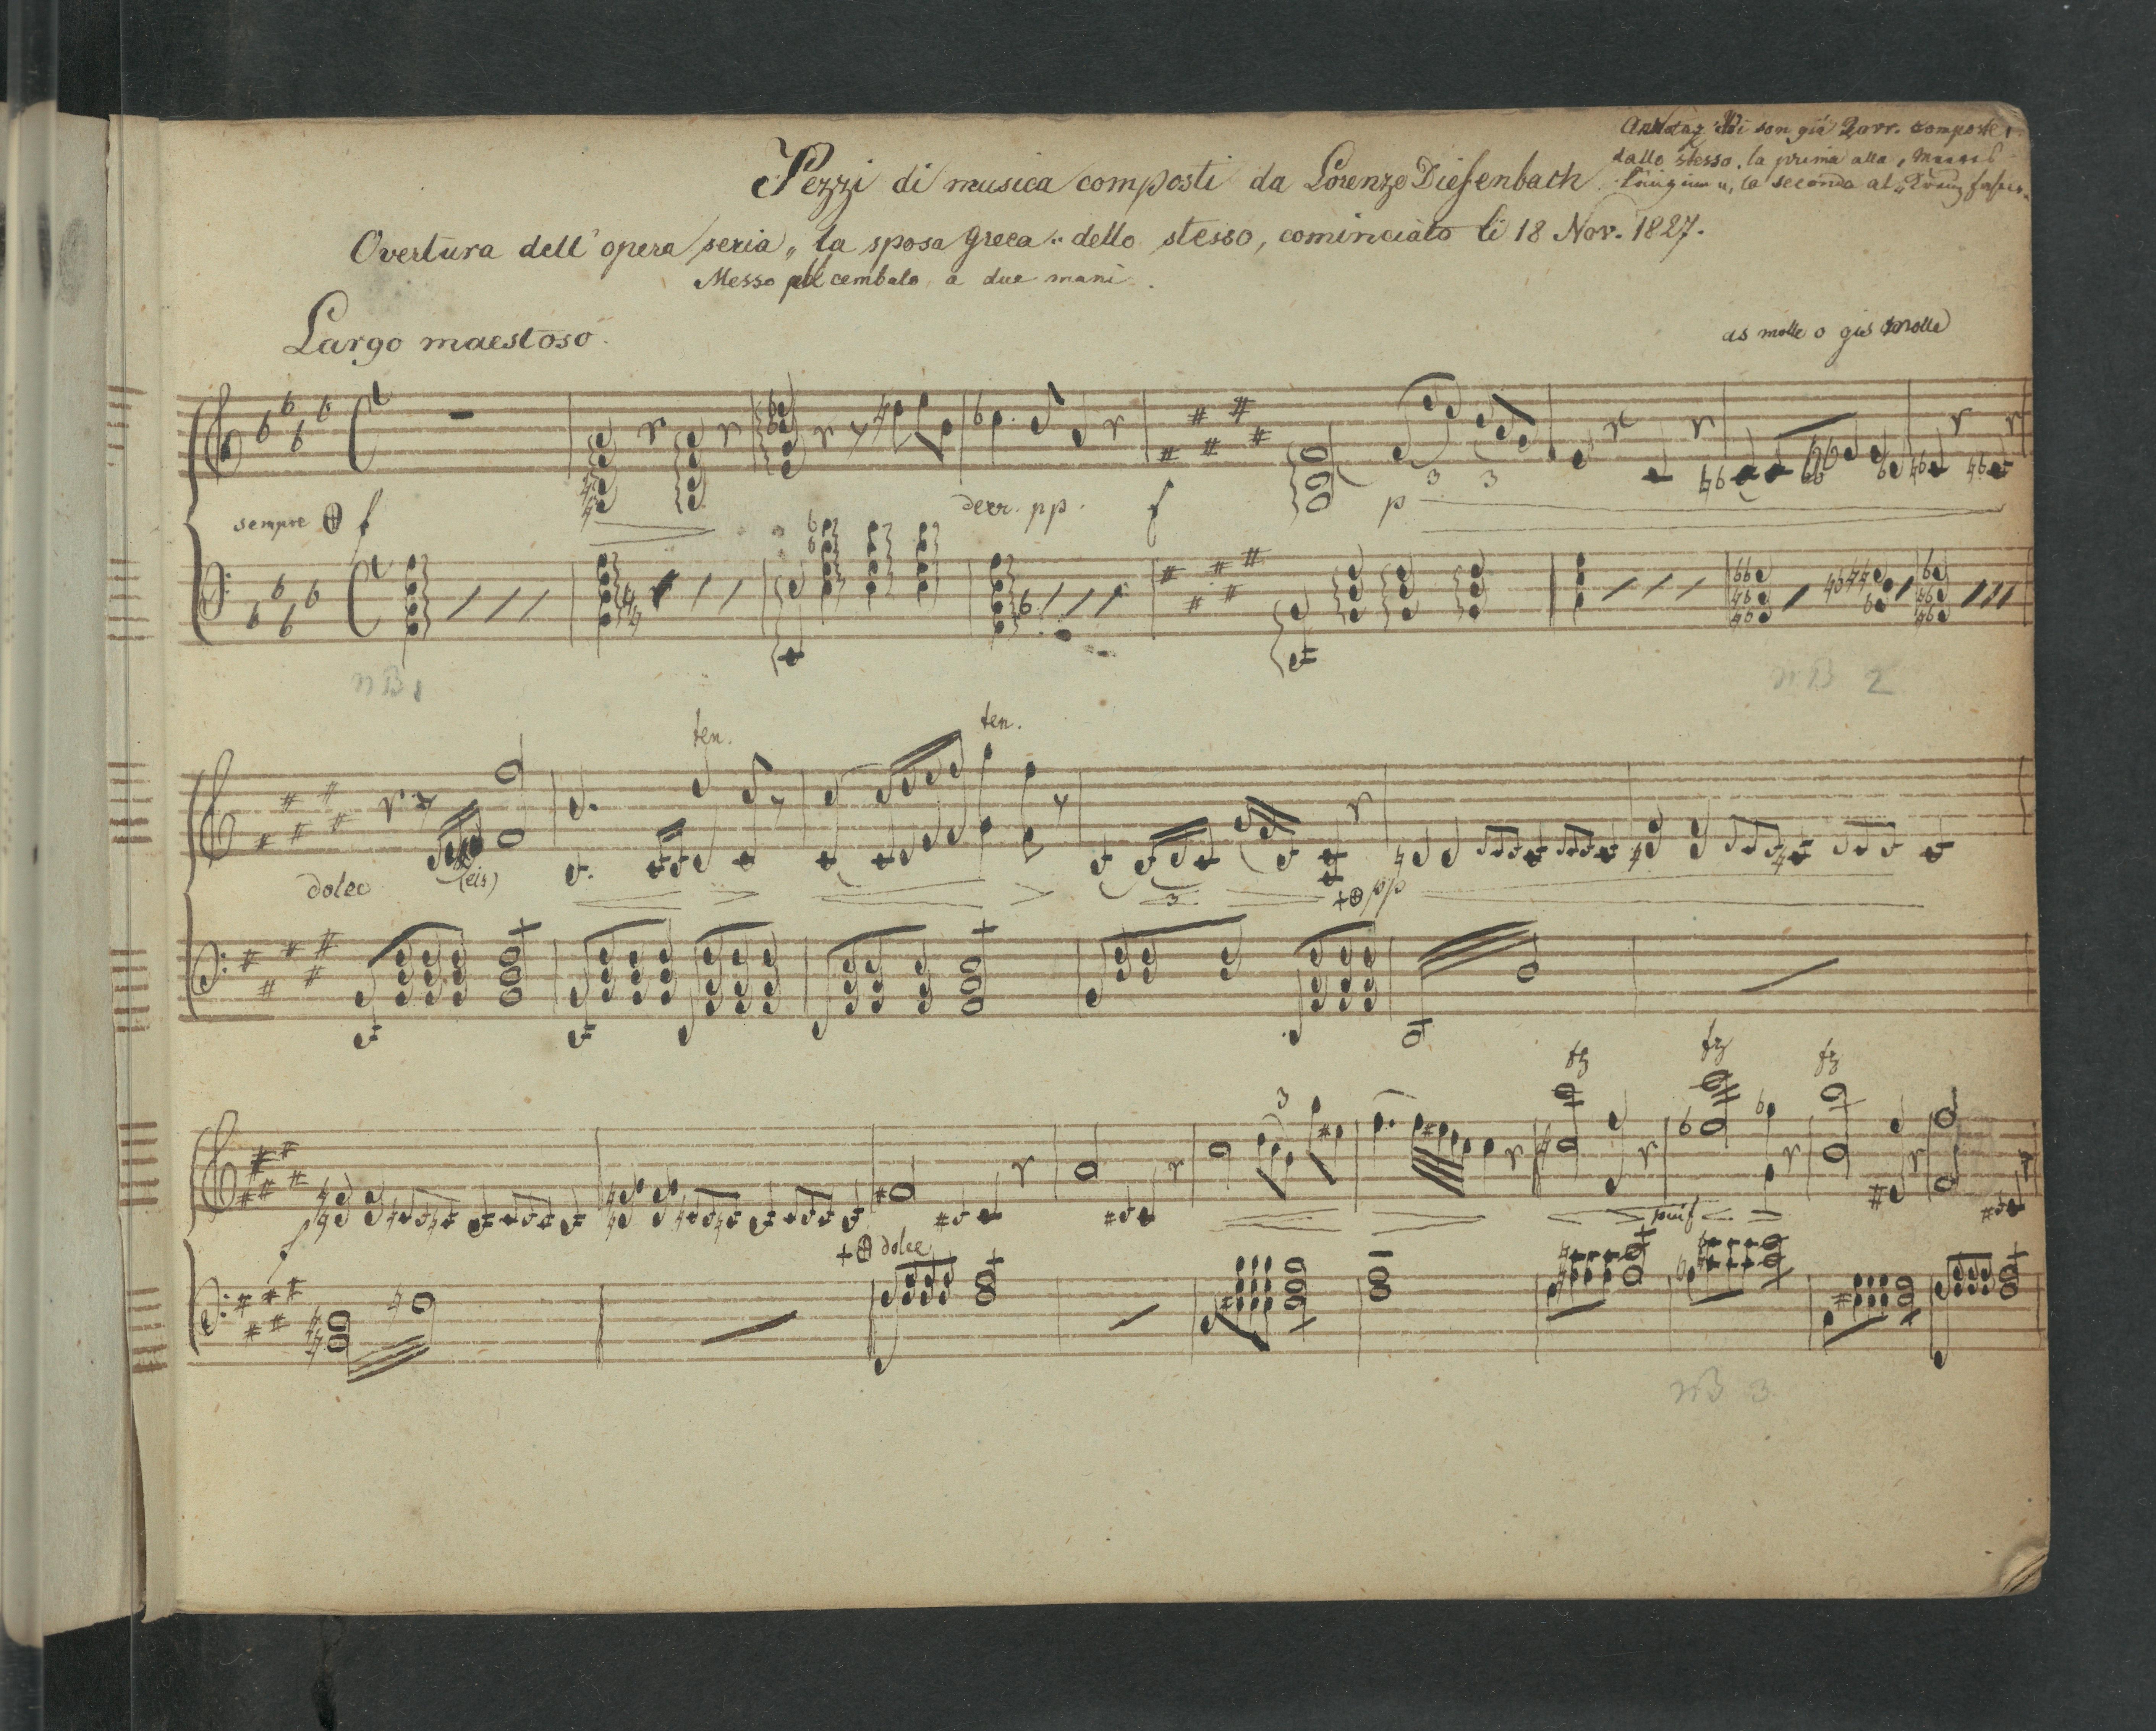 Annotaz. Vi son già 2 ovv. composte
dallo stesso. la prima alla
Pezzi di musica composti da Lorenzo Diefenbach
la seconda al
Overtura dell' opera seria „la sposa greca“ dello stesso, cominciato li 18 Nov. 1827.
Messo pel cembalo a due mani.
Largo maestoso.
as molle o gis molle
decr. pp. f p
sempre f
NB 1
NB 2
ten. ten.
dolce (eis) 3 pp
fz fz fz
3
f pmf
dolce
NB 3.